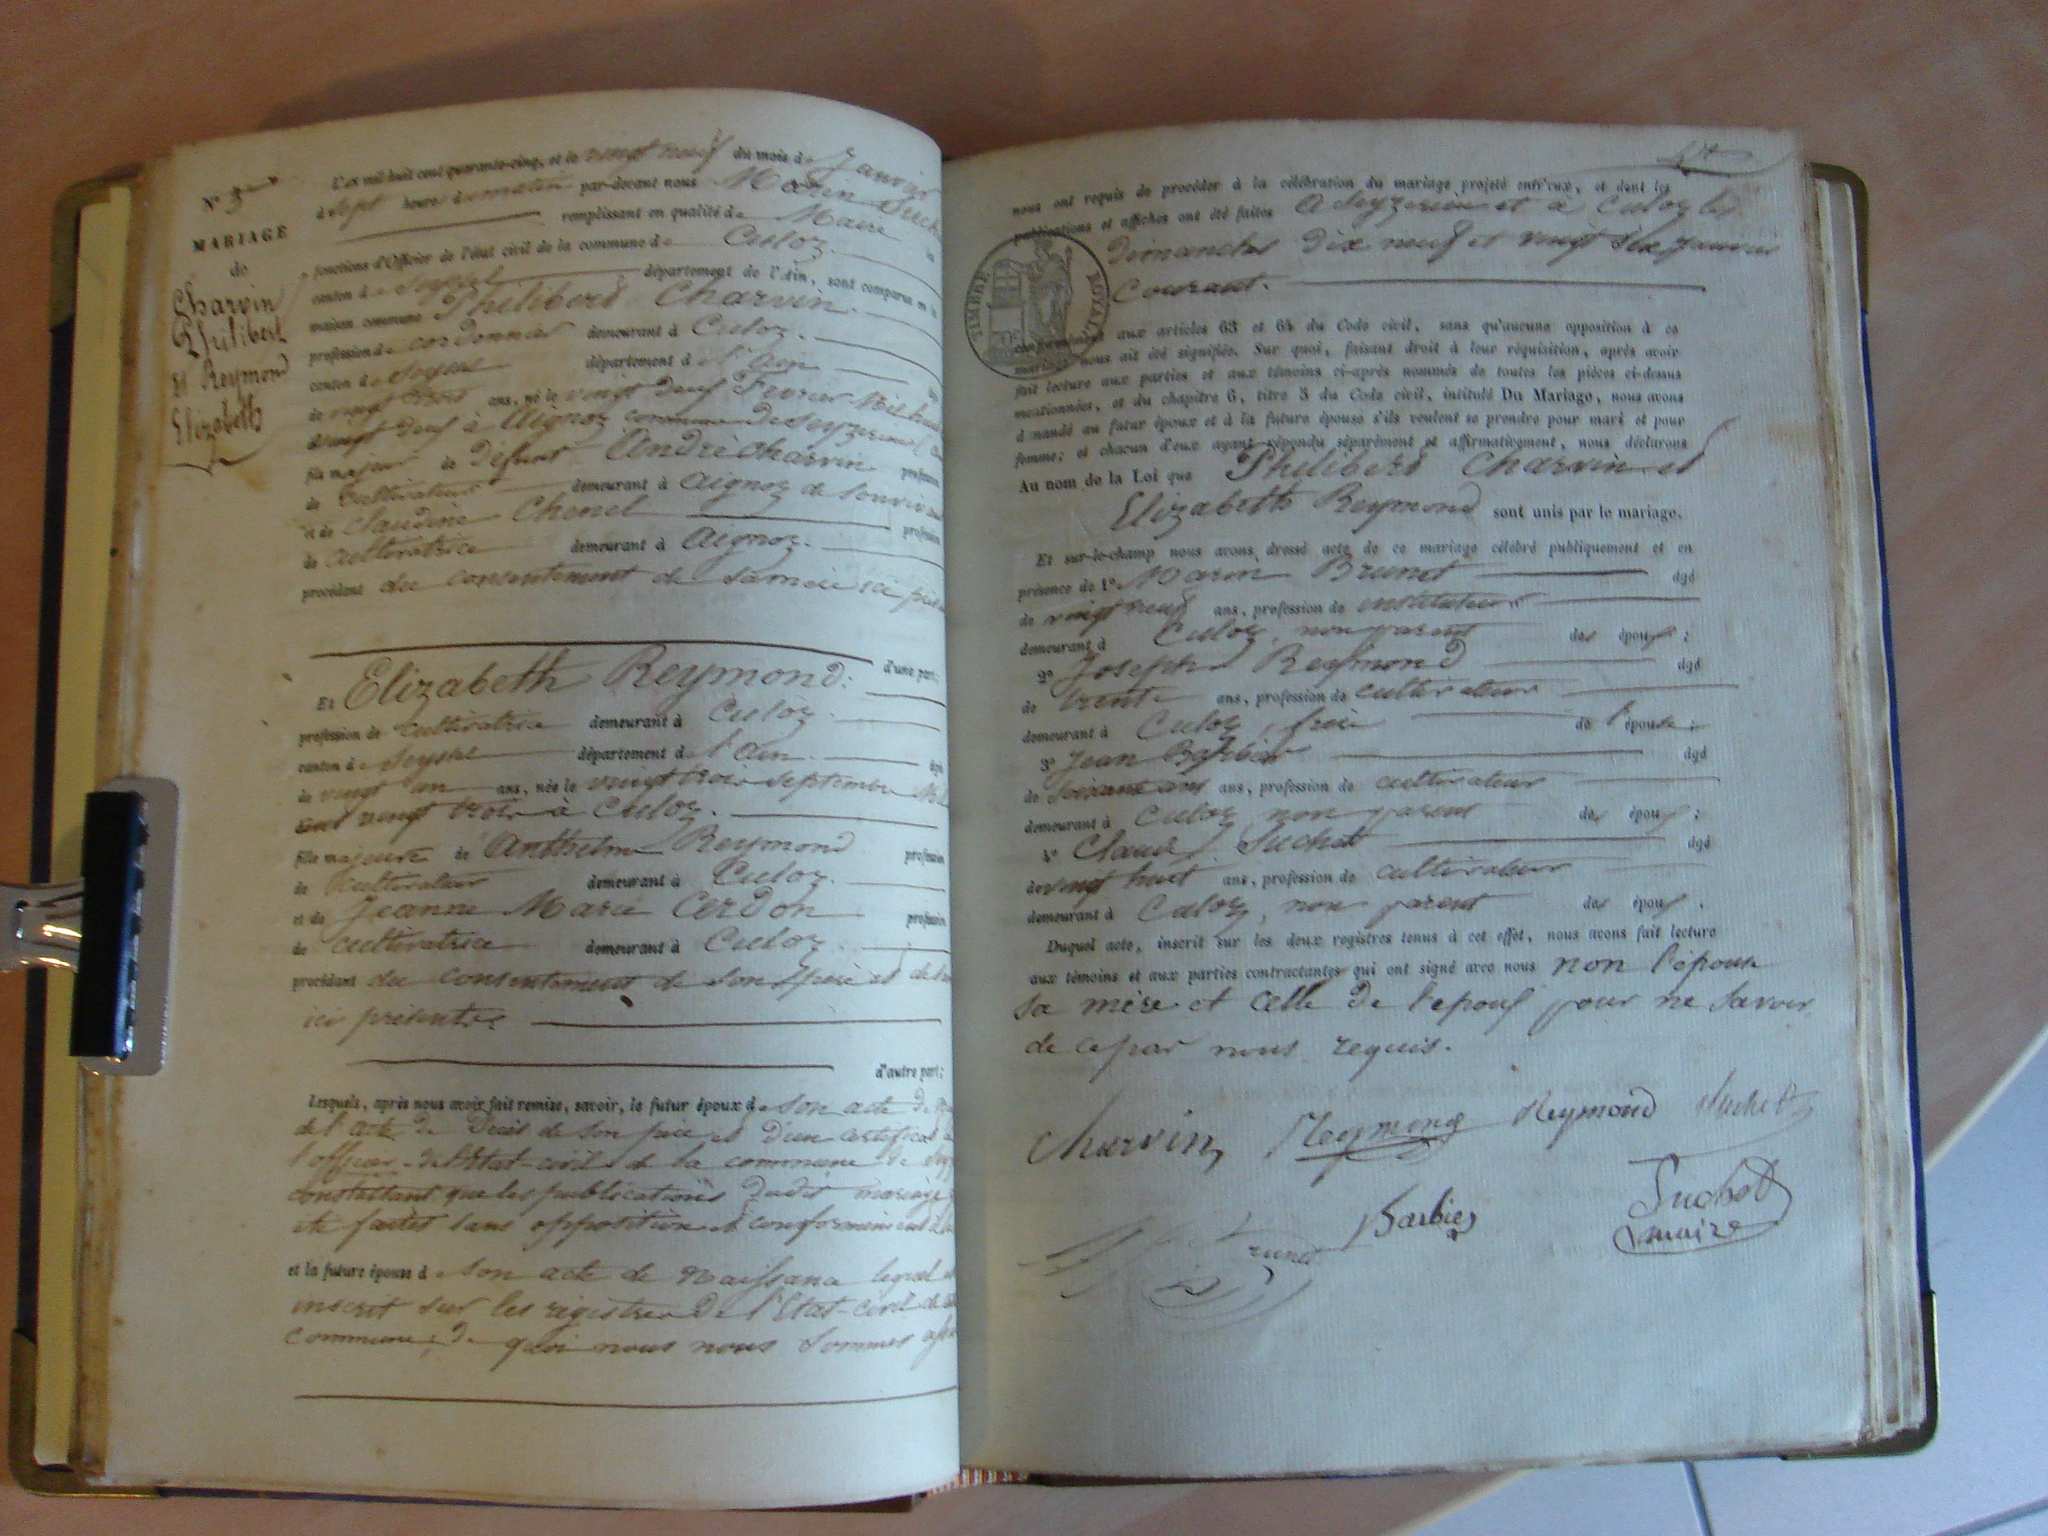 N° 3
MARIAGE
de
Charvin
Philibert
et Reymond
Elizabeth
L'an mil huit cent quarante-cinq, et le vingt neuf du mois de Janvier
à sept heures du matin par-devant nous Marin Such
remplissant en qualité de Maire les
fonctions d'Officier de l'état civil de la commune de Culoz
canton de Seyssel département de l'Ain, sont comparus en la
maison commune Philibert Charvin
profession de cordonnier demeurant à Culoz
canton de Seyssel département de l'Ain
de vingt trois ans, né le vingt deux Fevrier Mil huit
vingt deux à Aignoz commune de Seyzerieu
fils majeur de défunt André Charvin profession
de cultivateur demeurant à Aignoz de son vivant
et de Claudine Chenel profession
de cultivatrice demeurant à Aignoz.
procédant du consentement de sa mère ici
d'une part;
Et Elizabeth Reymond.
profession de cultivatrice demeurant à Culoz
canton de Seyssel département de l'Ain
de vingt un ans, née le vingt trois septembre Mil
vingt trois à Culoz.
fille majeure de Anthelme Reymond profession
de cultivateur demeurant à Culoz.
et de Jeanne Marie Cerdon profession
de cultivatrice demeurant à Culoz.
procédant du consentement de son père et de
ici présents
d'autre part;
Lesquels, après nous avoir fait remise, savoir, le futur époux de son acte de
de l'acte de Décès de son père et d'un certificat
l'officier de l'Etat-civil de la commune de
constatant que les publications dudit mariage
été faites sans opposition et conformément
et la future épouse de son acte de naissance lequel
inscrit sur les registres de l'Etat-civil de
commune; de quoi nous nous sommes
nous ont requis de procéder à la célébration du mariage projeté entr'eux, et dont les
publications et affiches ont été faites à Seyzerieu et à Culoz les
dimanches dix neuf et vingt six janvier
courant.
TIMBRE ROYAL
conformément aux articles 63 et 64 du Code civil, sans qu'aucune opposition à ce
mariage nous ait été signifiée. Sur quoi, faisant droit à leur réquisition, après avoir
fait lecture aux parties et aux témoins ci-après nommés de toutes les pièces ci-dessus
mentionnées, et du chapitre 6, titre 5 du Code civil, intitulé Du Mariage, nous avons
demandé au futur époux et à la future épouse s'ils veulent se prendre pour mari et pour
femme; et chacun d'eux ayant répondu séparément et affirmativement, nous déclarons
Au nom de la Loi que Philibert Charvin et
Elizabeth Reymond sont unis par le mariage.
Et sur-le-champ nous avons dressé acte de ce mariage célébré publiquement et en
présence de 1° Marin Brunet âgé
de vingt neuf ans, profession de instituteur
demeurant à Culoz, non parent des époux;
2° Joseph Reymond âgé
de trente ans, profession de cultivateur
demeurant à Culoz, frère de l'épouse;
3° Jean Barbier âgé
de soixante ans ans, profession de cultivateur
demeurant à Culoz non parent des époux;
4° Claude Suchet âgé
de vingt huit ans, profession de cultivateur
demeurant à Culoz, non parent des époux.
Duquel acte, inscrit sur les deux registres tenus à cet effet, nous avons fait lecture
aux témoins et aux parties contractantes qui ont signé avec nous non l'épouse
sa mère et celle de l'époux pour ne savoir
de ce par nous requis.
Charvin Reymond Reymond Suchet
Brunet Barbier Suchet
maire